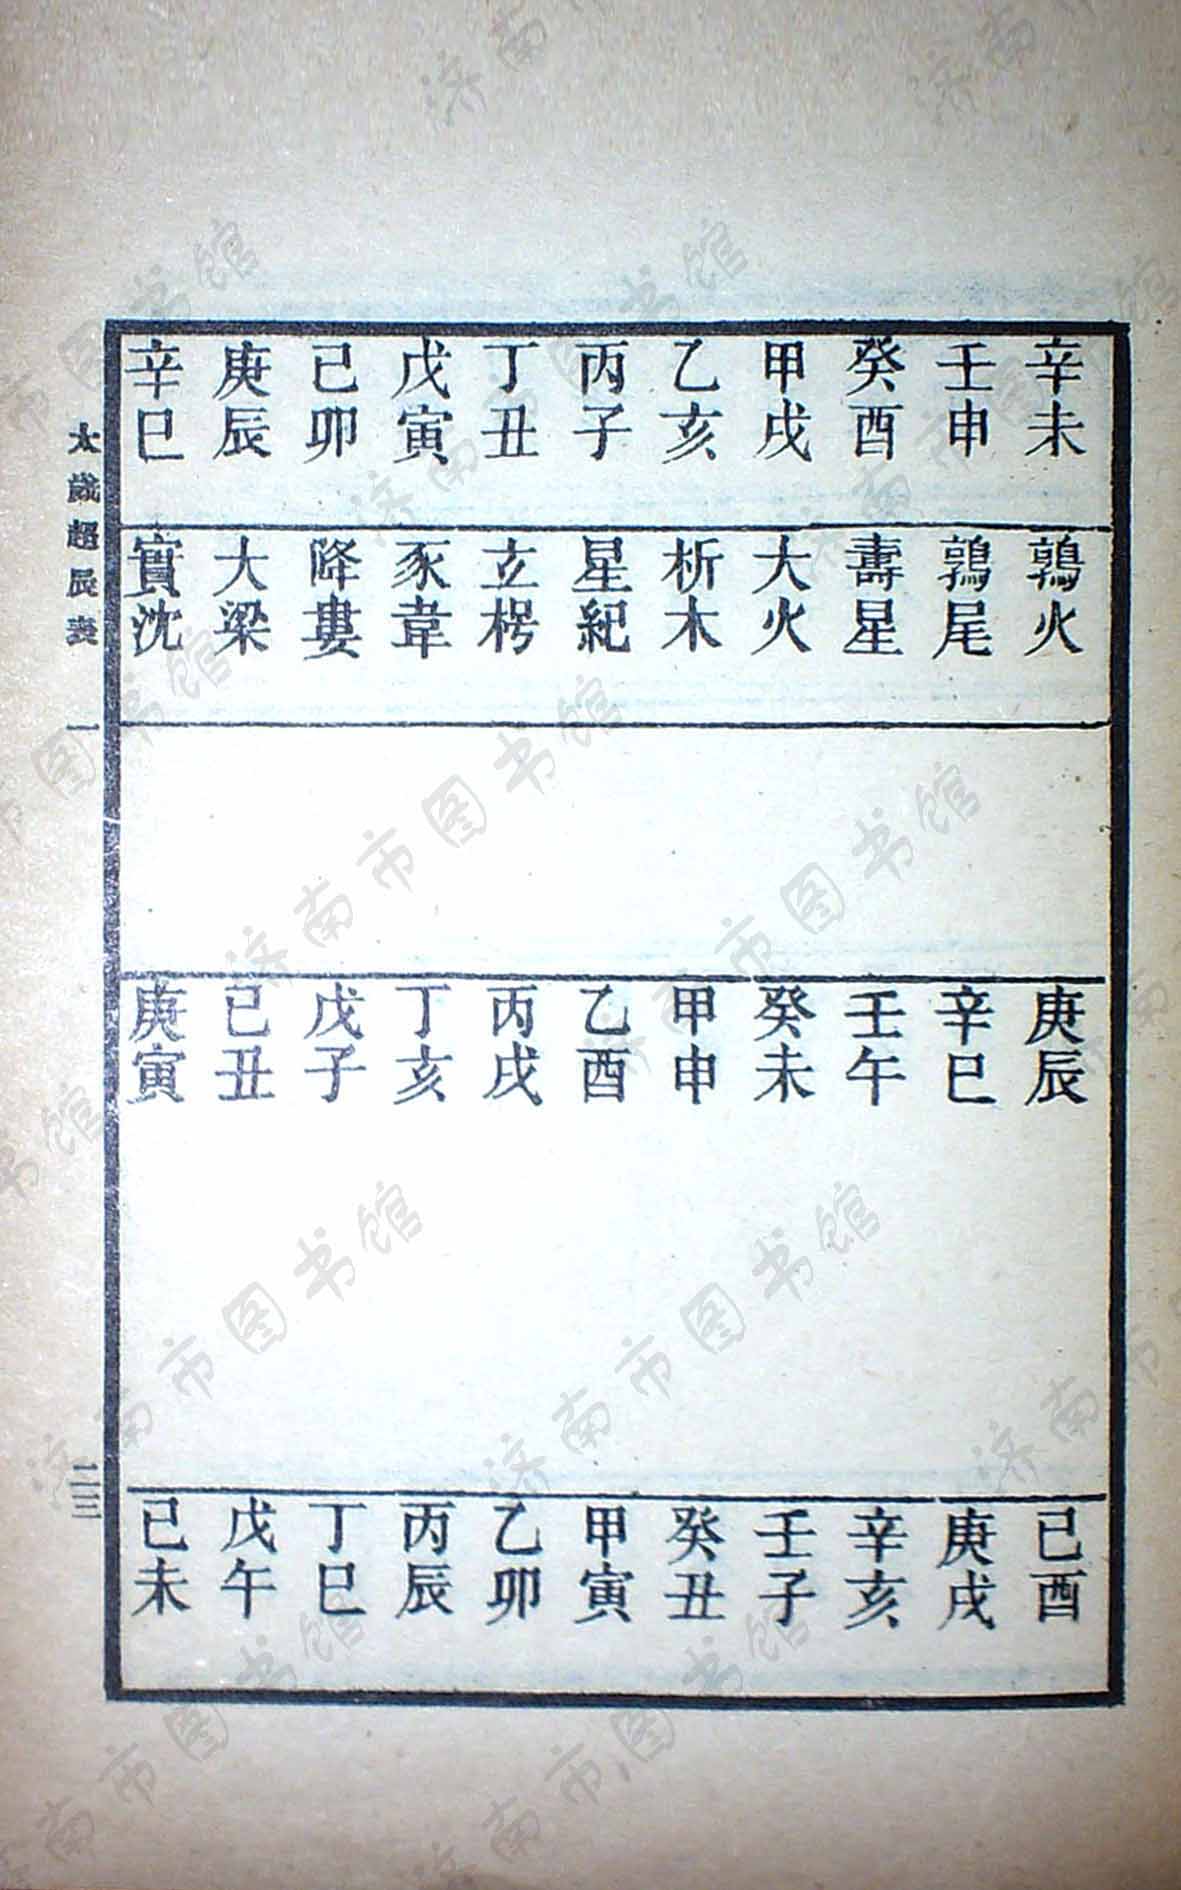 辛未 壬申 癸酉 甲戌 乙亥 丙子 丁丑 戊寅 己卯 庚辰 辛巳
鶉火 鶉尾 壽星 大火 析木 星紀 玄枵 豕韋 降婁 大梁 實沈
庚辰 辛巳 壬午 癸未 甲申 乙酉 丙戌 丁亥 戊子 己丑 庚寅
己酉 庚戌 辛亥 壬子 癸丑 甲寅 乙卯 丙辰 丁巳 戊午 己未
太歲超辰表 一 二三
济南市图书馆